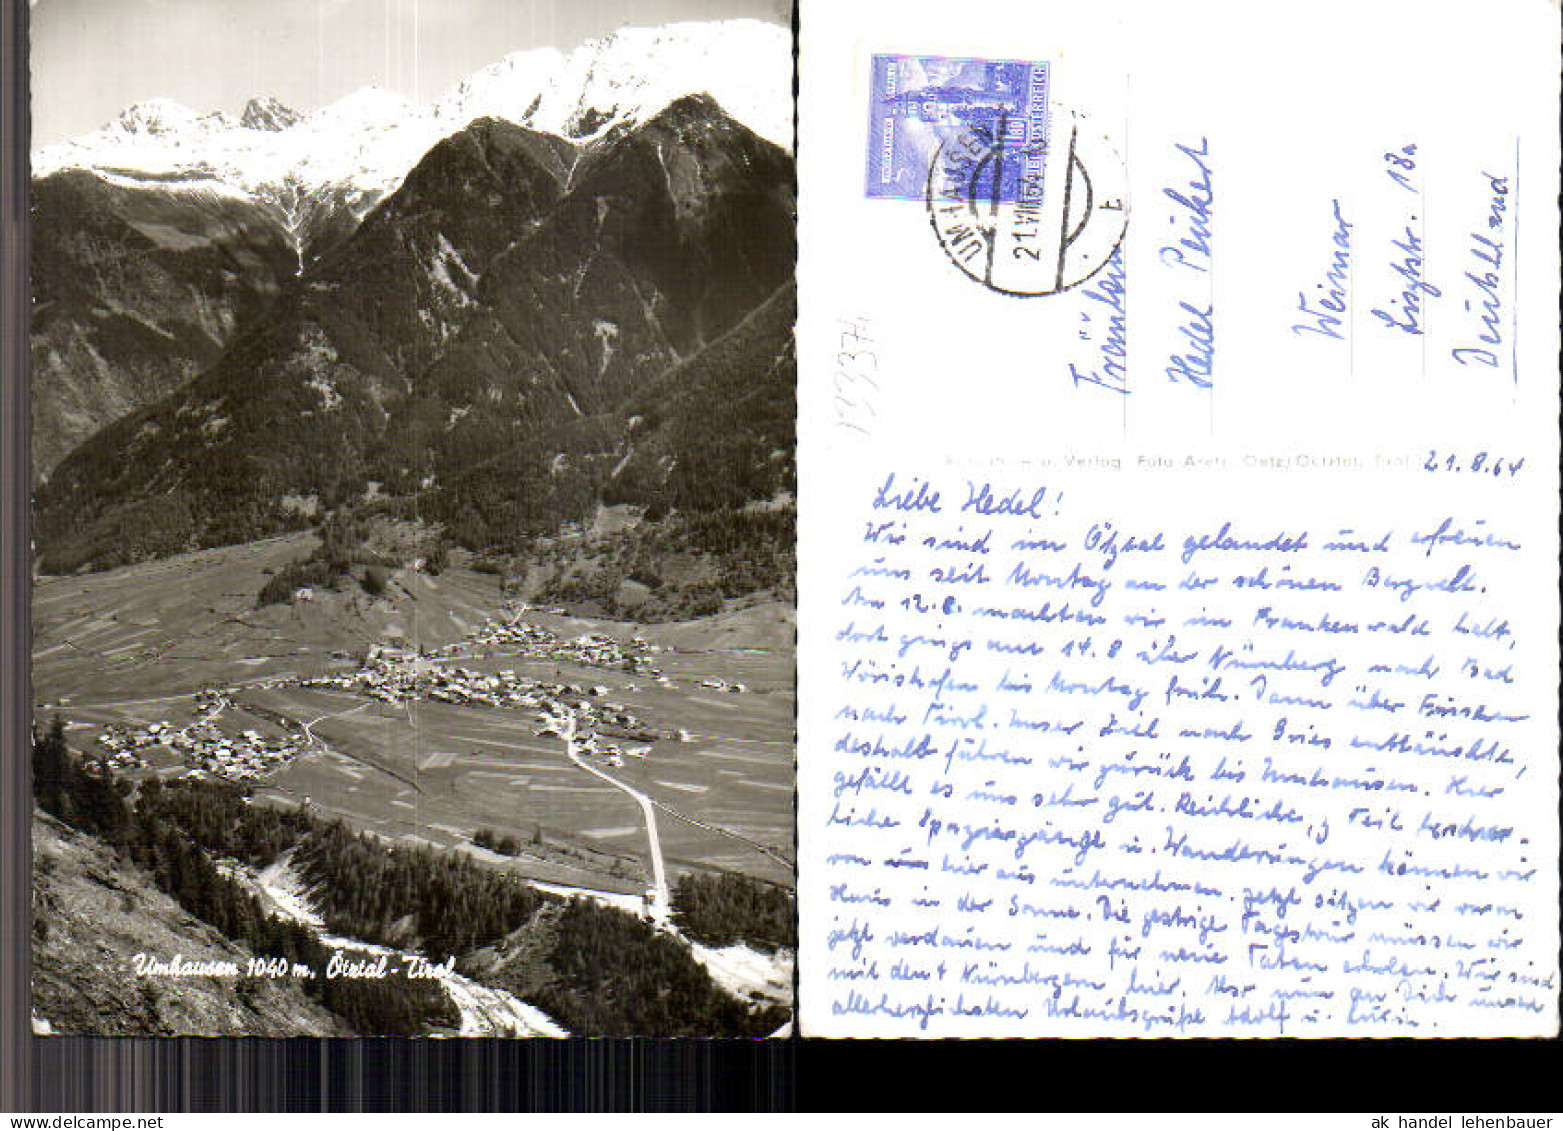 Umhausen 1040 m, Ötztal - Tirol
ÖSTERREICH
UMHAUSEN
21.VIII.64
Fräulein
Hedel
Weimar
Lisztstr. 18a
Deutschland
Verlag Foto Oetz/Ötztal, Tirol
21.8.64
Liebe Hedel!
Wir sind im Ötztal gelandet und erfreuen
uns seit Montag an der schönen Bergwelt.
Am 12.8. machten wir im Frankenwald halt,
dort gings am 14.8 über Nürnberg nach Bad
Wörishofen bis Montag früh. Dann über Füssen
nach Tirol. Unser Ziel nach Gries enttäuschte,
deshalb führen wir zurück bis Umhausen. Hier
gefällt es uns sehr gut. Reichliche, z. Teil
liche Spaziergänge u. Wanderungen können wir
von hier aus unternehmen. Jetzt sitzen wir vorm
Haus in der Sonne. Die gestrige Tagestour müssen wir
jetzt verdauen und für neue Taten erholen. Wir sind
mit den 4 Nürnbergern hier. Nur nun an Dich unsere
allerherzlichsten Urlaubsgrüße Adolf u.
ak handel lehenbauer